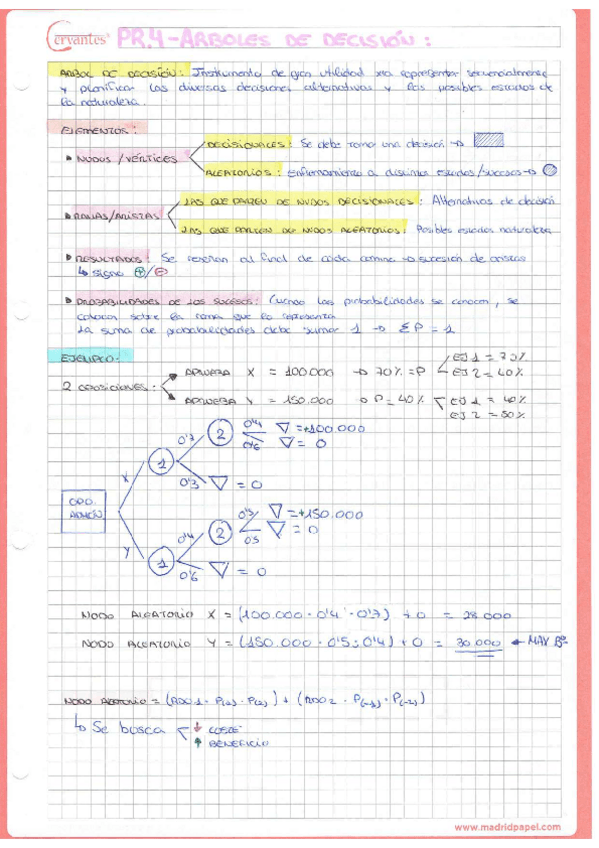 Cervantes PR.4-ARBOLES DE DECISIÓN:
ARBOL DE DECISIÓN: Instrumento de gran utilidad xra representar secuencialmente
y planificar las diversas decisiones alternativas y los posibles estados de
la naturaleza.
ELEMENTOS:
DECISIONALES: Se debe tomar una decisión →
• NUDOS/VÉRTICES
ALEATORIOS: Enfrentamiento a distintos estados/sucesos →
LAS QUE PARTEN DE NUDOS DECISIONALES: Alternativas de decisión
• RAMAS/ARISTAS
LAS QUE PARTEN DE NUDOS ALEATORIOS: Posibles estados naturaleza
• RESULTADOS: Se reseñan al final de cada camino → sucesión de aristas
↳ signo ⊕/⊖
• PROBABILIDADES DE LOS SUCESOS: Cuando las probabilidades se conocen, se
colocan sobre la rama que la representa
La suma de probabilidades debe sumar 1 → ΣP = 1
EJEMPLO:
EJ 1 = 70%
APRUEBA X = 100.000 → 70% = P
EJ 2 = 40%
2 OPOSICIONES:
APRUEBA Y = 150.000 → P = 40%
EJ 1 = 40%
EJ 2 = 50%
0'4 ▽ = +100.000
2
0'6 ▽ = 0
0'7
1
X
0'3 ▽ = 0
OPO.
0'5 ▽ = +150.000
2
0'5 ▽ = 0
Y
0'4
1
0'6 ▽ = 0
NODO ALEATORIO X = (100.000 · 0'4 · 0'7) + 0 = 28.000
NODO ALEATORIO Y = (150.000 · 0'5 · 0'4) + 0 = 30.000 ← MAX Bº
NODO ALEATORIO = (RDO1 · P(1) · P(2)) + (RDO2 · P(-1) · P(-2))
↳ Se busca
↓ COSTE
↑ BENEFICIO
www.madridpapel.com